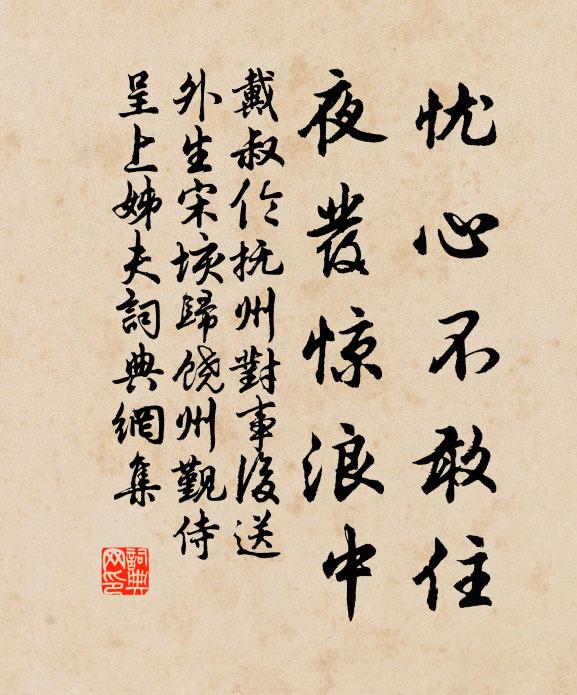 忧心不敢住
夜發惊浪中
戴叔伦抚州對事後送
外生宋垓歸饶州觐侍
呈上姊夫詞典網集
詞典网印